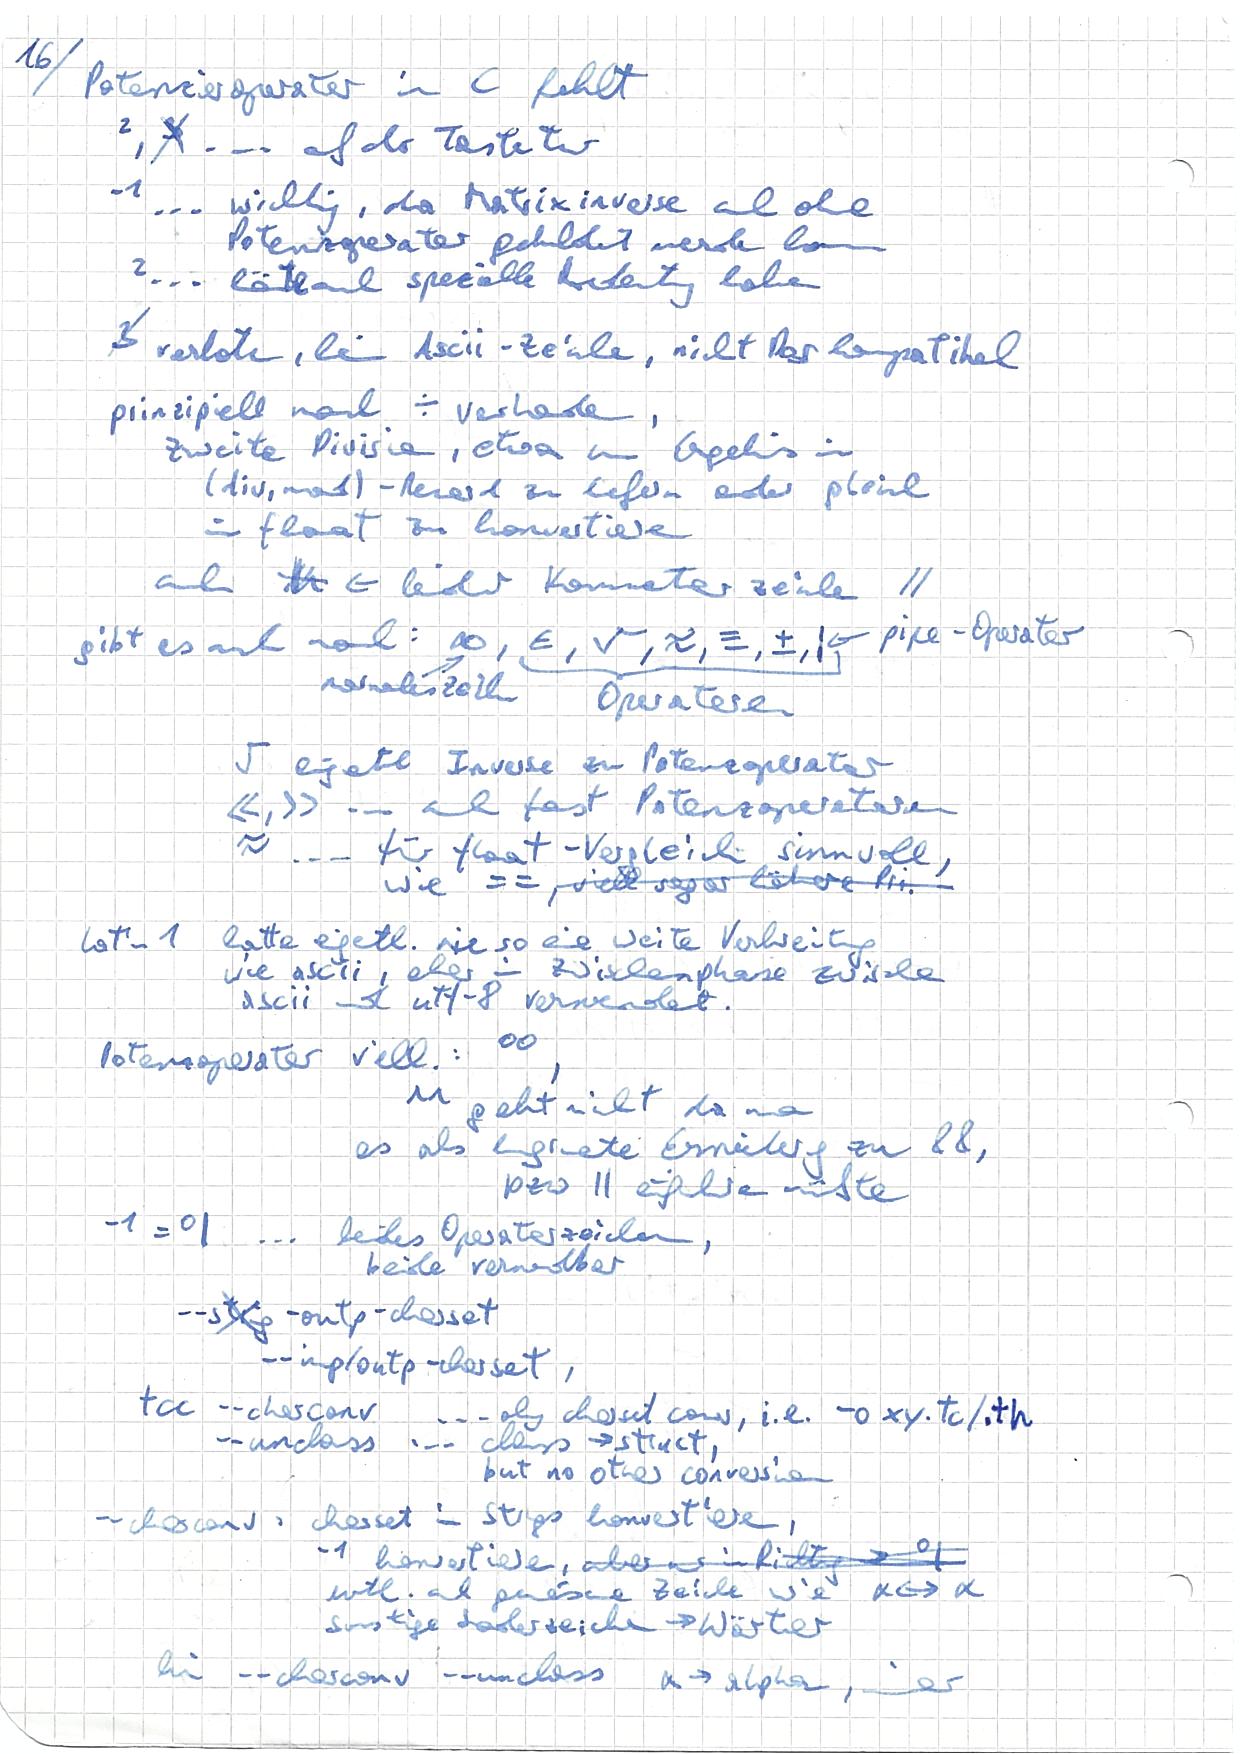 16/
Potenzieroperator in C fehlt
², ³ .... auf der Tastatur
-1 ... wichtig, da Matrixinverse auch ohne
Potenzoperator gebildet werden kann
² ... könnte auch spezielle Bedeutung haben
³ verboten, kein Ascii-Zeichen, nicht kompatibel
prinzipiell noch ÷ vorhanden,
zweite Division, etwa um Ergebnis in
(div, mod)-Record zu liefern oder gleich
in float zu konvertieren
auch ← leider Kommentarzeichen //
gibt es auch noch: ∞, ∈, √, ≈, ≡, ±, | ← pipe-Operator
normales Zeich. Operatoren
√ eigentl Inverse zu Potenzoperator
≪, ≫ ... auch fast Potenzoperatoren
≈ .... für float-Vergleich sinnvoll,
wie ==, viell sogar höhere Pri.
Latin 1 hatte eigentl. nie so eine weite Verbreitung
wie ascii, aber in Zwischenphase zwischen
ascii und utf-8 verwendet.
Potenzoperator viell.: °°,
^^ geht nicht da man
es als Ergänzung zu &&,
bzw || einführen müßte
-1 = 0| ... beides Operatorzeichen,
beide verwendbar
--string-outp-charset
--inp/outp-charset,
tcc --charconv .... only charset conv, i.e. -o xy.tc/.th
--unclass ... class → struct,
but no other conversion
--charconv: charset in Strings konvertieren,
-1 konvertieren, aber nur in Richtung → 0|
evtl. auch griechische Zeichen wie α ↔ α
sonstige Sonderzeichen → Wörter
bei --charconv --unclass α → alpha, immer